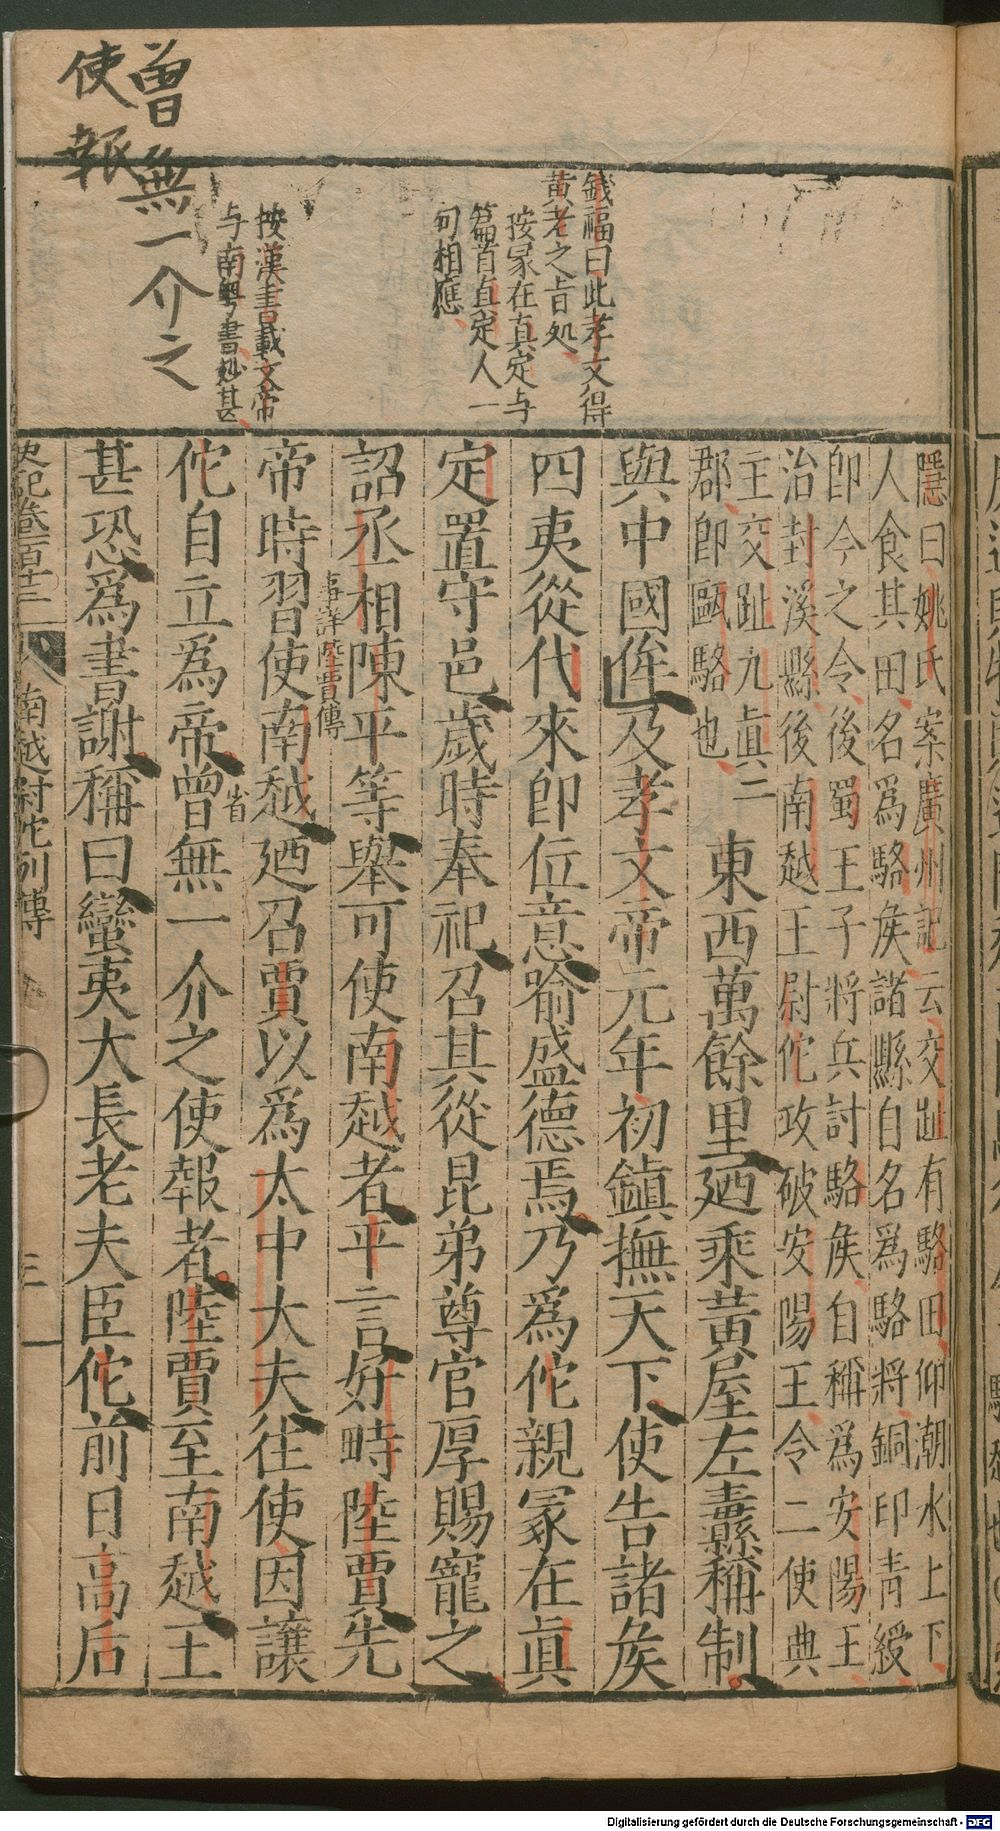 曾無一介之
使報
錢福曰此孝文得
黄老之旨処
按冡在真定与
篇首真定人一
句相應
按漢書載文帝
与南粤書妙甚
隱曰姚氏案廣州記云交趾有駱田仰潮水上下
人食其田名爲駱矦諸縣自名爲駱將銅印青綬
卽今之令後蜀王子將兵討駱矦自稱爲安陽王
治封溪縣後南越王尉佗攻破安陽王令二使典
主交趾九眞二
郡卽甌駱也
東西萬餘里廼乘黃屋左纛稱制
與中國侔及孝文帝元年初鎮撫天下使告諸矦
四夷從代來卽位意喻盛德焉乃爲佗親冡在眞
定置守邑歲時奉祀召其從昆弟尊官厚賜寵之
詔丞相陳平等舉可使南越者平言好畤陸賈先
事詳陸賈傳
帝時習使南越廼召賈以爲太中大夫往使因讓
佗自立爲帝曾無一介之使報者陸賈至南越王
省
甚恐爲書謝稱曰蠻夷大長老夫臣佗前日高后
史記卷一百十三
南越尉佗列傳
三
Digitalisierung gefördert durch die Deutsche Forschungsgemeinschaft - DFG